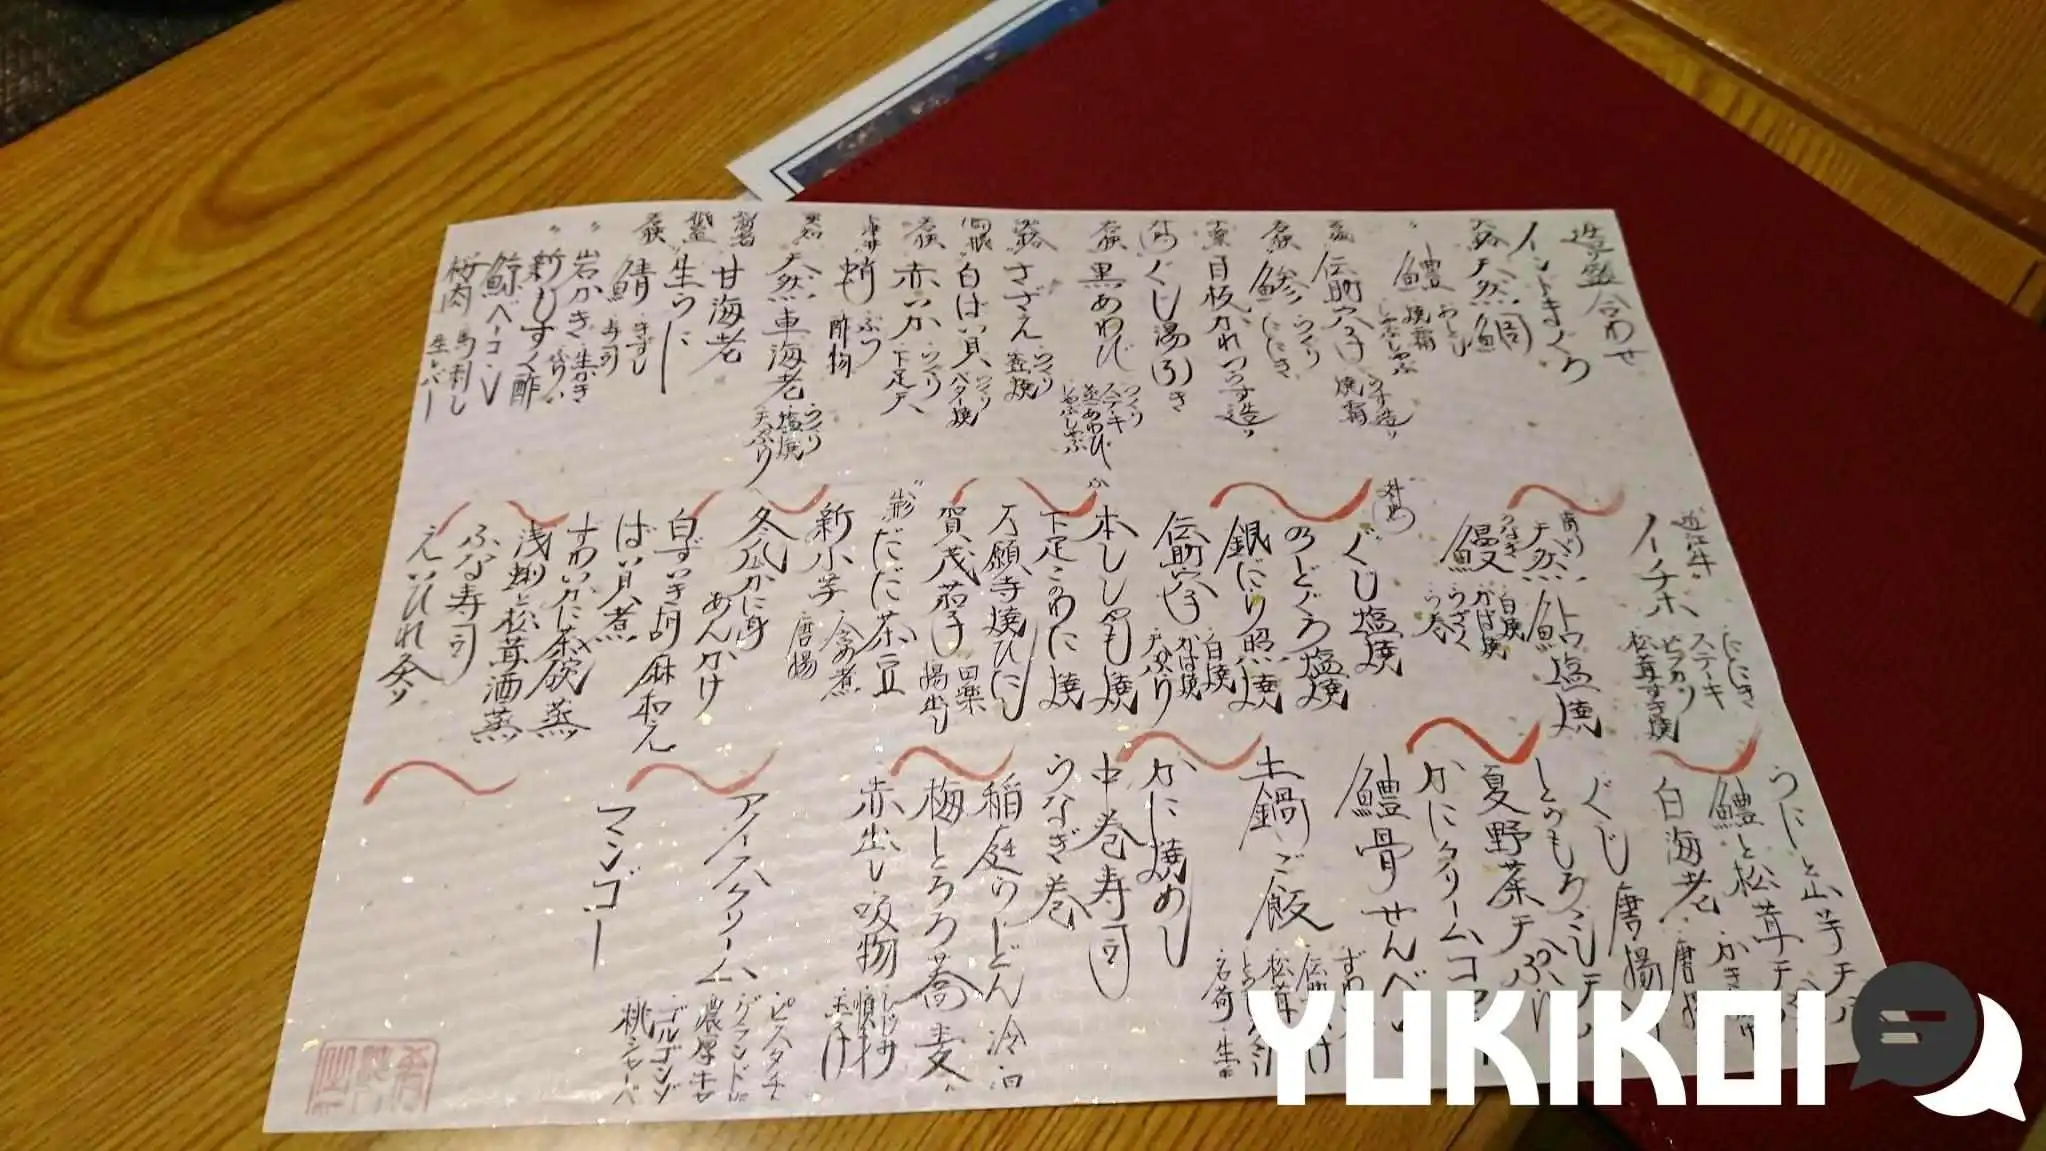 造り盛合わせ
インドまぐろ
淡路 天然鯛
鱧 おとし
焼霜
しゃぶしゃぶ
伝助穴子 うす造り
焼霜
若狭 鯵 つくり
にぎり
千葉 目板かれい うす造り
ぐじ湯引き
若狭 黒あわび つくり
ステーキ
蒸あわび
しゃぶしゃぶ
淡路 さざえ つくり
壺焼
白ばい貝 つくり
バター焼
若狭 赤いか つくり
下足天
蛸 ぶつ
酢物
愛知 天然車海老 つくり
塩焼
天ぷら
甘海老
生うに
若狭 鯖 きずし
寿司
〃 岩かき 生がき
〃 新もずく酢
鯨ベーコン
桜肉 馬刺し
生レバー
近江牛
イチボ にぎり
ステーキ
ビフカツ
松茸すき焼
天然鮎塩焼
うなぎ
鰻 白焼
かば焼
うざく
う巻
ぐじ塩焼
のどぐろ塩焼
銀だら照焼
伝助穴子 白焼
かば焼
天ぷら
本ししゃも焼
下足このわた焼
万願寺焼びたし
賀茂茄子 田楽
揚出し
山形 だだ茶豆
新小芋 含め煮
唐揚
冬瓜かに身
あんかけ
白ずいき胡麻和え
ばい貝煮
ずわいかに茶碗蒸
浅蜊と松茸酒蒸
ふな寿司
えいひれ炙り
うにと山芋天ぷら
鱧と松茸天ぷら
白海老 かき揚げ
唐揚
ぐじ唐揚
とうもろこし天ぷら
夏野菜天ぷら
かにクリームコロッケ
鱧骨せんべい
土鍋ご飯
かに焼めし
中巻寿司
うなぎ巻
稲庭うどん 冷 温
梅とろろ蕎麦
赤出し 吸物
アイスクリーム ピスタチオ
マンゴー
桃シャーベ
YUKIKOI